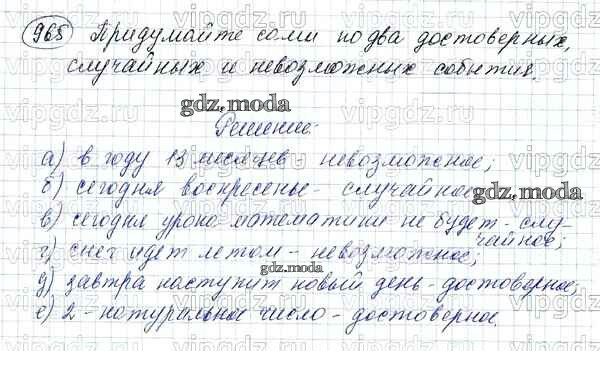 965 Придумайте сами по два достоверных,
случайных и невозможных события.
gdz.moda
Решение:
а) в году 13 месяцев невозможное;
б) сегодня воскресенье - случайное
gdz.moda
в) сегодня урока математики не будет - слу-
чайное;
г) снег идет летом - невозможное;
gdz.moda
д) завтра наступит новый день - достоверное;
е) 2 - натуральное число - достоверное.
gdz.moda